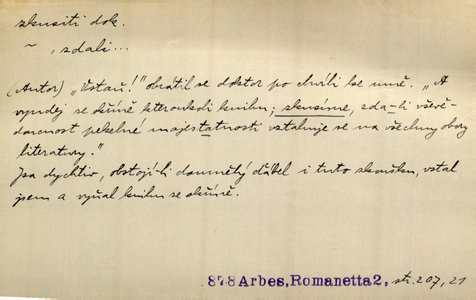 zkusiti dok.
~ , zdali...
(Autor) „Vstaň!" obrátil se doktor po chvíli ke mně. „A
vyndej se skříně kteroukoli knihu; zkusíme, zda-li vševě-
doucnost pekelné majestatnosti vztahuje se na všechny obory
literatury."
Jsa dychtiv, obstojí-li domnělý ďábel i tuto zkoušku, vstal
jsem a vyňal knihu ze skříně.
878 Arbes, Romanetta 2, str. 207, 21